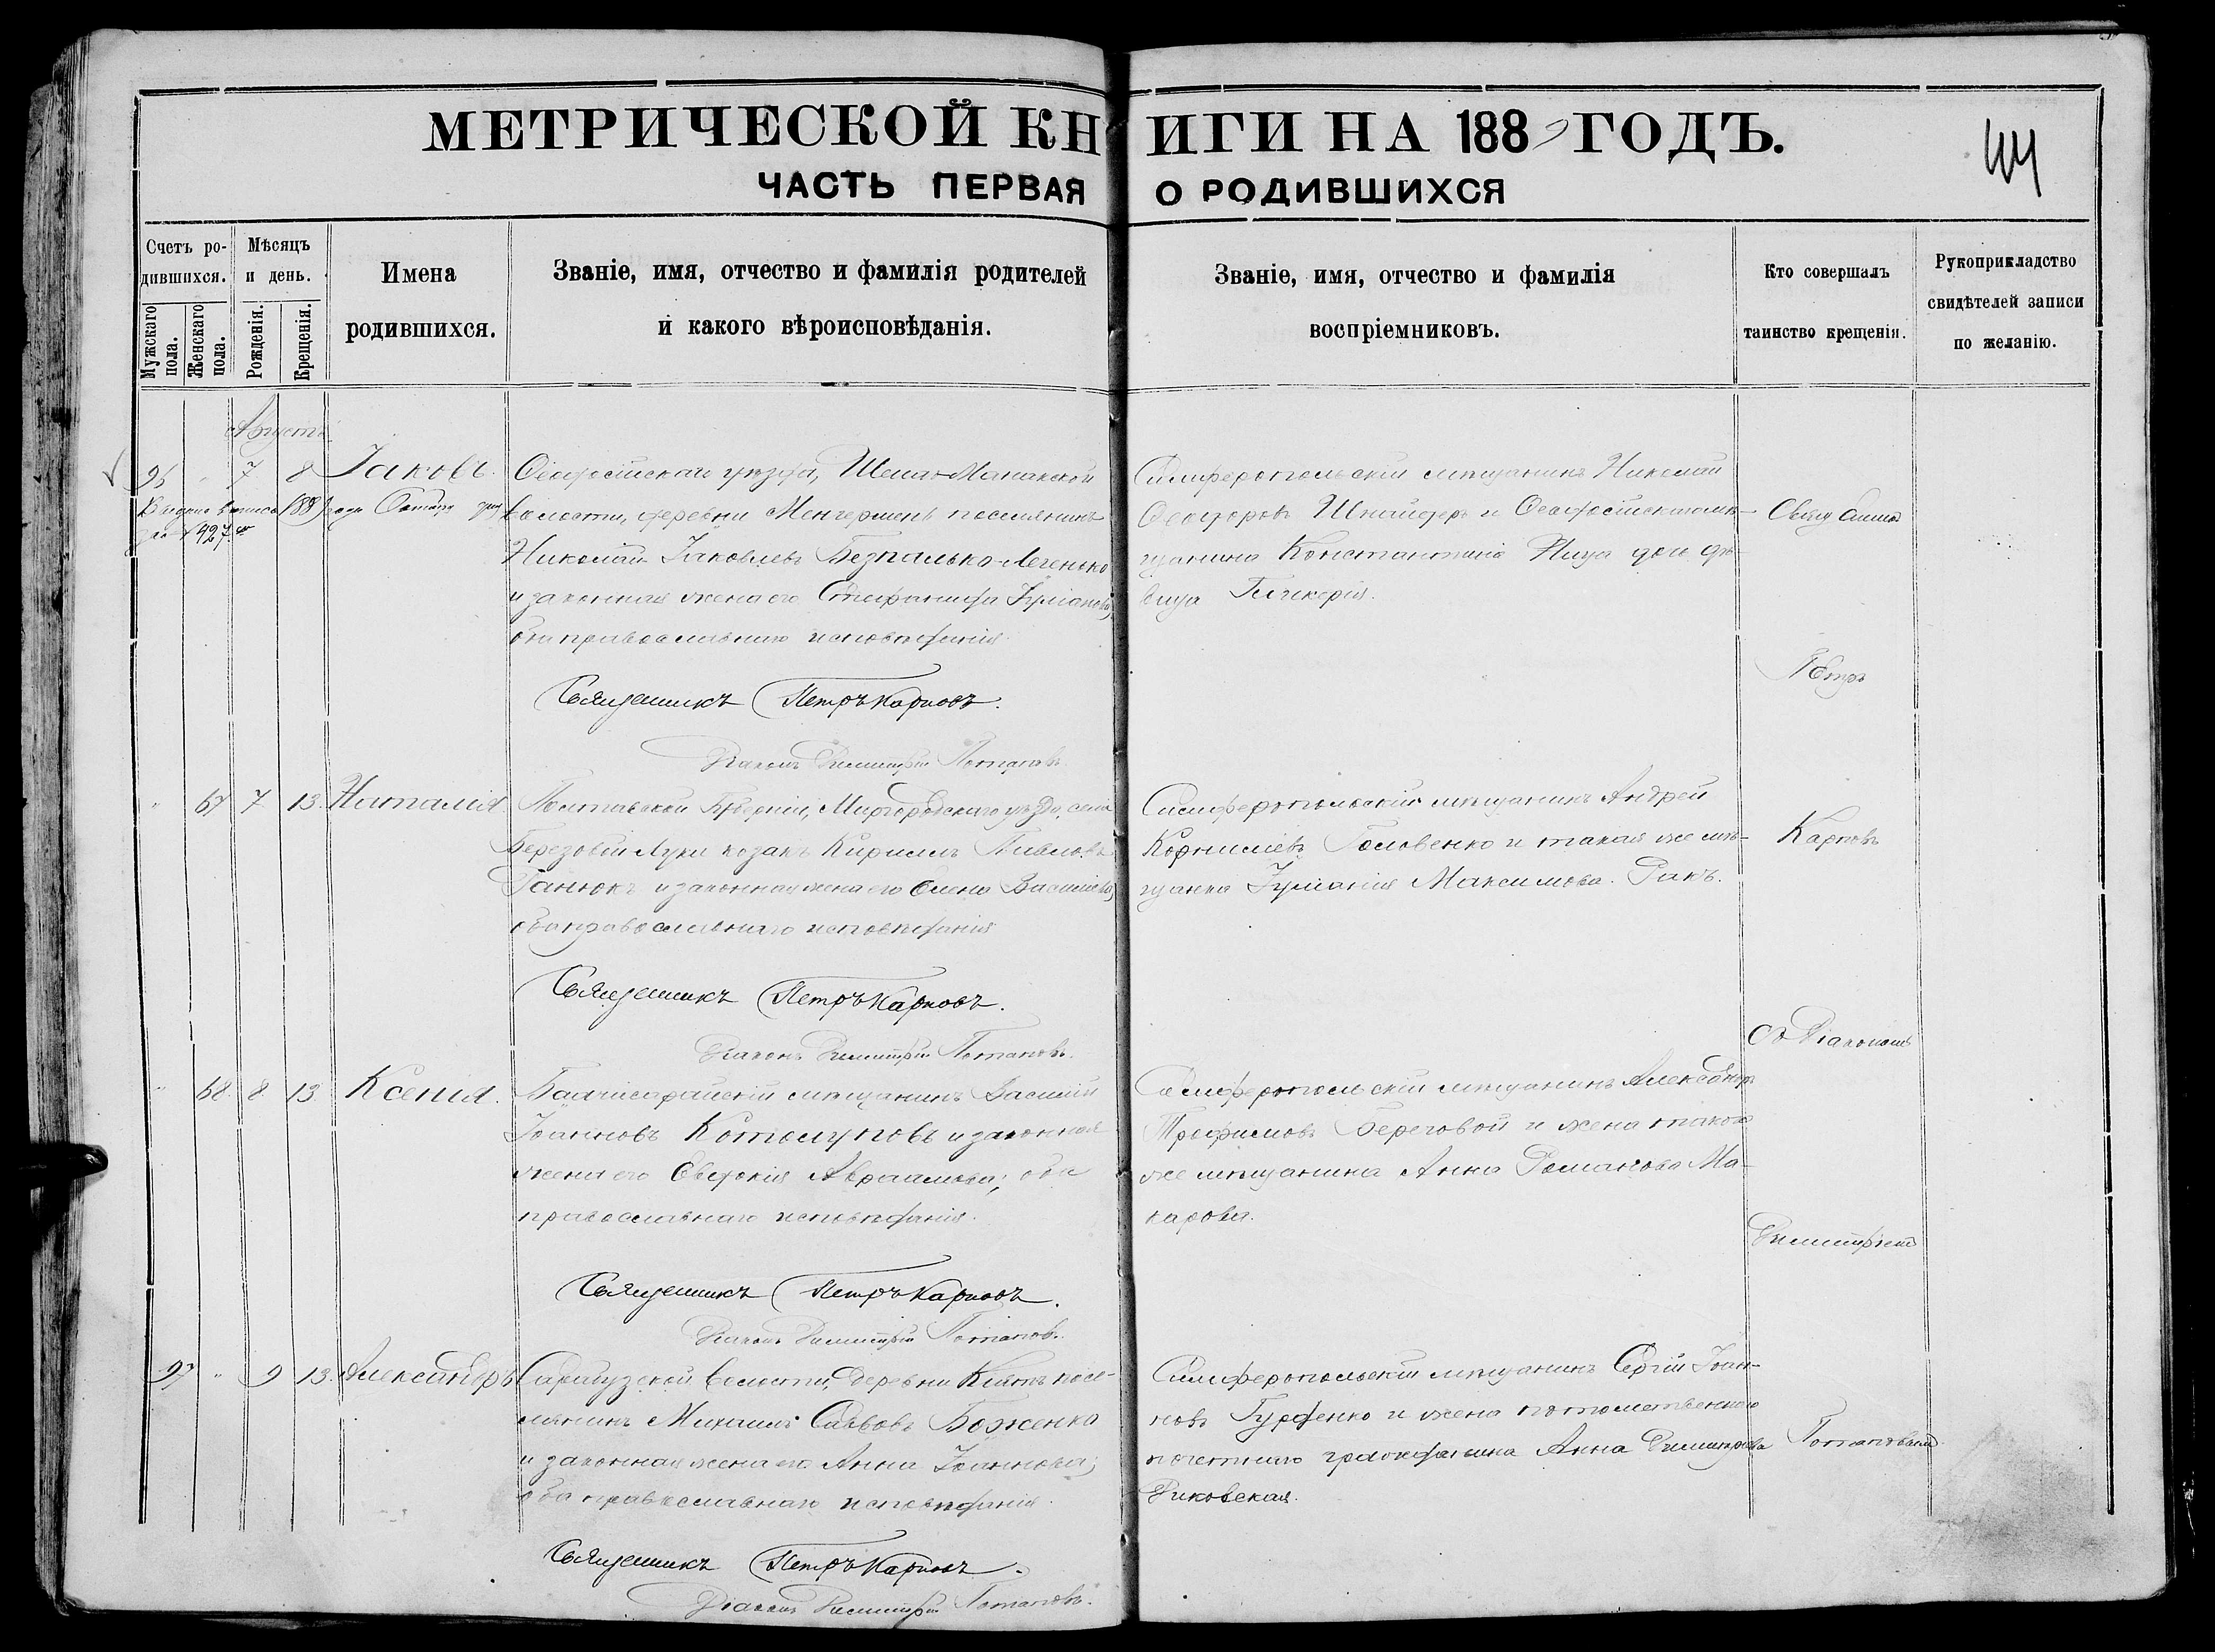 МЕТРИЧЕСКОЙ КНИГИ НА 188 ГОДЪ.
44
ЧАСТЬ ПЕРВАЯ О РОДИВШИХСЯ
Счетъ родившихся.
Мужскаго пола.
Женскаго пола.
Мѣсяцъ и день.
Рожденія.
Крещенія.
Имена родившихся.
Званіе, имя, отчество и фамилія родителей
и какого вѣроисповѣданія.
Званіе, имя, отчество и фамилія
воспріемниковъ.
Кто совершалъ
таинство крещенія.
Рукоприкладство
свидѣтелей записи
по желанію.
Августъ
7 8 Іаковъ.
Ѳеодосійскаго уѣзда,
волости, деревни Менгермень поселянинъ
Николай Іаковлевъ Безпалько-Легенько
и законная жена его Стефанида Іуліанова,
оба православнаго исповѣданія.
Симферопольскій мѣщанинъ Николай
Ѳеодоровъ Шнайдеръ и Ѳеодосійскаго мѣ-
щанина Константина дочь дѣ-
вица Гликерія.
Священникъ Петръ Карповъ.
Діаконъ Димитрій Потаповъ.
67 7 13. Наталія
Полтавской Губерніи, Миргородскаго уѣзда, села
Березовой Луки козакъ Кириллъ Павловъ
Ганюкъ и законная жена его Елена Васильева,
оба православнаго исповѣданія
Симферопольскій мѣщанинъ Андрей
Корниліевъ Головенко и такая же мѣ-
щанка Іуліанія Максимова Ракъ.
Священникъ Петръ Карповъ.
Діаконъ Димитрій Потаповъ.
68 8 13 Ксенія.
Бахчисарайскій мѣщанинъ Василій
Іоанновъ Котолуповъ и законная
жена его Евдокія Авраамова; оба
православнаго исповѣданія.
Симферопольскій мѣщанинъ Александръ
Трофимовъ Береговой и жена такого
же мѣщанина Анна Романова Ма-
карова.
Священникъ Петръ Карповъ.
Діаконъ Димитрій Потаповъ.
97 " 9 13. Александръ
Сарабузской волости, деревни Кіятъ посе-
лянинъ Михаилъ Савовъ Боженко
и законная жена его Анна Іоаннова;
оба православнаго исповѣданія.
Симферопольскій мѣщанинъ Сергій Іоан-
новъ Гурденко и жена потомственнаго
почетнаго гражданина Анна Димитріева
Риковская.
Священникъ Петръ Карповъ.
Діаконъ Димитрій Потаповъ.
Петръ
Карповъ
съ Діакономъ
Димитріемъ
Потаповымъ.